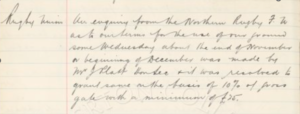 Rugby Union An enquiry from the Northern Rugby F. U.
as to our terms for the use of our ground
some Wednesday about the end of November
or beginning of December was made by
Mr J. Platt and it was resolved to
grant same on the basis of 10% of gross
gate with a minimum of £25.